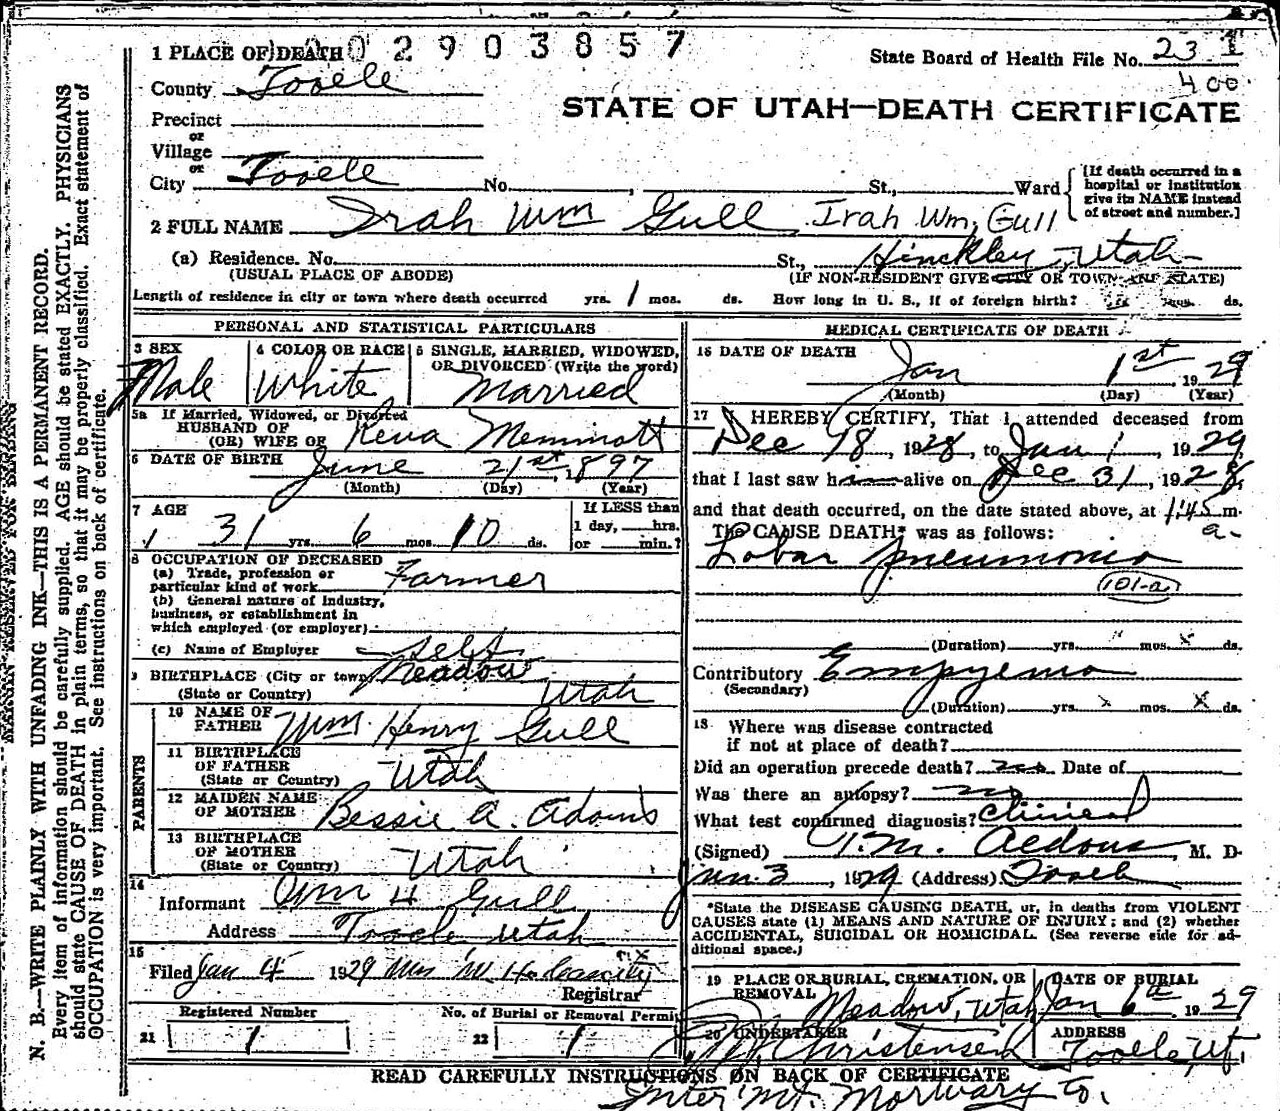 1 PLACE OF DEATH 0 2 9 0 3 8 5 7
State Board of Health File No. 23
400
County Tooele
STATE OF UTAH—DEATH CERTIFICATE
Precinct
or
Village
or
City Tooele No. , St., Ward
[If death occurred in a
hospital or institution
give its NAME instead
of street and number.]
2 FULL NAME Irah Wm Gull Irah Wm, Gull
(a) Residence. No. St., Hinckley, Utah
(USUAL PLACE OF ABODE) (IF NON-RESIDENT GIVE CITY OR TOWN AND STATE)
Length of residence in city or town where death occurred yrs. 1 mos. ds. How long in U. S., if of foreign birth? ds.
PERSONAL AND STATISTICAL PARTICULARS
3 SEX
Male
4 COLOR OR RACE
White
5 SINGLE, MARRIED, WIDOWED,
OR DIVORCED (Write the word)
Married
5a If Married, Widowed, or Divorced
HUSBAND OF
(OR) WIFE OF Reva Memmott
6 DATE OF BIRTH June 21st, 1897
(Month) (Day) (Year)
7 AGE
31 yrs. 6 mos. 10 ds.
If LESS than
1 day, hrs.
or min.?
8 OCCUPATION OF DECEASED
(a) Trade, profession or
particular kind of work Farmer
(b) General nature of industry,
business, or establishment in
which employed (or employer)
(c) Name of Employer self
9 BIRTHPLACE (City or town) Meadow
(State or Country) Utah
PARENTS
10 NAME OF
FATHER Wm. Henry Gull
11 BIRTHPLACE
OF FATHER
(State or Country) Utah
12 MAIDEN NAME
OF MOTHER Bessie A. Adams
13 BIRTHPLACE
OF MOTHER
(State or Country) Utah
14
Informant Wm H Gull
Address Tooele Utah
15
Filed Jan 4 1929 Mrs
Registrar
Registered Number
21 1
No. of Burial or Removal Permit
22 1
MEDICAL CERTIFICATE OF DEATH
16 DATE OF DEATH
Jan 1st 1929
(Month) (Day) (Year)
17 I HEREBY CERTIFY, That I attended deceased from
Dec 18, 1928, to Jan 1, 1929
that I last saw him alive on Dec 31, 1928,
and that death occurred, on the date stated above, at 1:45 m.
a.
The CAUSE DEATH* was as follows:
Lobar pneumonia
101-a
(Duration) yrs. mos. x ds.
Contributory Empyema
(Secondary)
(Duration) yrs. x mos. x ds.
18 Where was disease contracted
if not at place of death?
Did an operation precede death? no Date of
Was there an autopsy? no
What test confirmed diagnosis? Clinical
(Signed) T. M. Aldous, M. D.
Jan. 3, 1929 (Address) Tooele
*State the DISEASE CAUSING DEATH, or, in deaths from VIOLENT
CAUSES state (1) MEANS AND NATURE OF INJURY; and (2) whether
ACCIDENTAL, SUICIDAL OR HOMICIDAL. (See reverse side for ad-
ditional space.)
19 PLACE OR BURIAL, CREMATION, OR
REMOVAL Meadow, Utah
DATE OF BURIAL
Jan 6th 1929
20 UNDERTAKER
Christensen
ADDRESS
Tooele, Ut.
READ CAREFULLY INSTRUCTIONS ON BACK OF CERTIFICATE
Inter Mt. Mortuary Co.
MARGIN RESERVED FOR BINDING
N. B.—WRITE PLAINLY WITH UNFADING INK—THIS IS A PERMANENT RECORD.
Every item of information should be carefully supplied. AGE should be stated EXACTLY. PHYSICIANS
should state CAUSE OF DEATH in plain terms, so that it may be properly classified. Exact statement of
OCCUPATION is very important. See instructions on back of certificate.